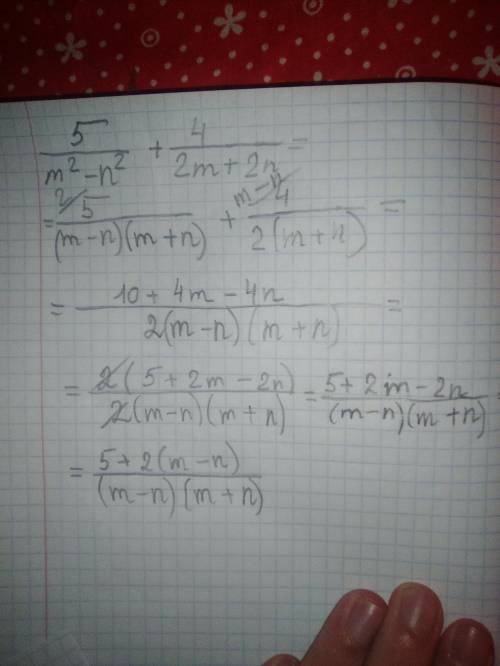 5/(m² - n²) + 4/(2m + 2n) =
= ²⁄ 5/((m - n)(m + n)) + ᵐ⁻ⁿ⁄ 4/(2(m + n)) =
= (10 + 4m - 4n)/(2(m - n)(m + n)) =
= 2(5 + 2m - 2n)/(2(m - n)(m + n)) = (5 + 2m - 2n)/((m - n)(m + n)) =
= (5 + 2(m - n))/((m - n)(m + n))